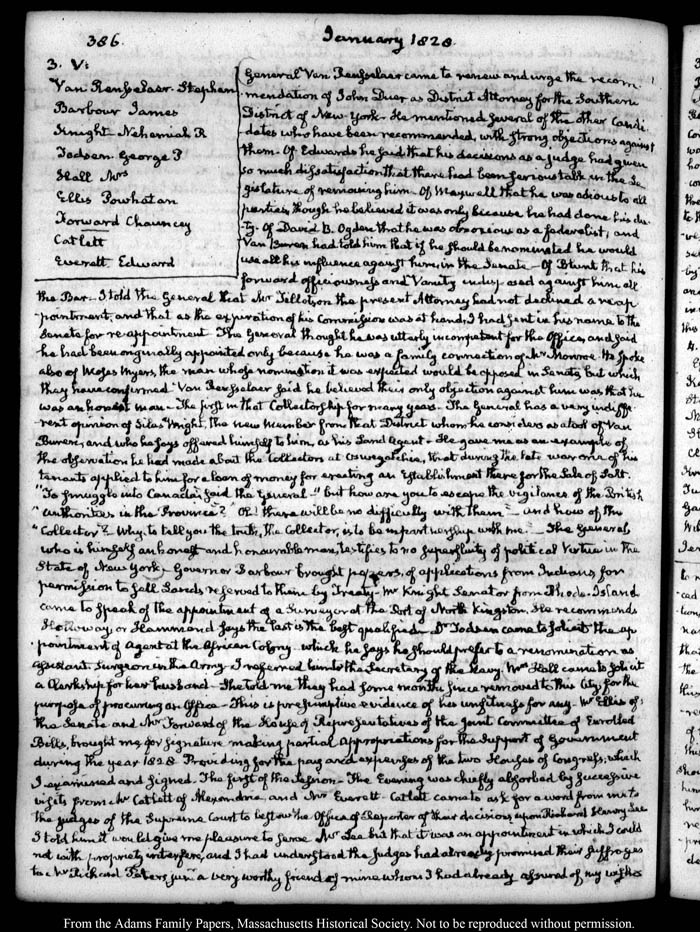 386.
January 1828.
3. V:
Van Rensselaer. Stephen
Barbour James
Knight Nehemiah R
Todsen George P
Hall Mrs
Ellis Powhatan
Forward Chauncey
Catlett
Everett Edward
General Van Rensselaer came to renew and urge the recom-
mendation of John Duer as District Attorney for the Southern
District of New-York. He mentioned several of the other Candi-
dates who have been recommended, with strong objections against
them. Of Edwards he said that his decisions as a judge had given
so much dissatisfaction that there had been serious talk in the Le-
gislature of removing him. Of Maxwell that he was odious to all
parties, though he believed it was only because he had done his du-
ty. Of David B. Ogden that he was obnoxious as a federalist, and
Van Buren had told him that if he should be nominated he would
use all his influence against him, in the Senate. Of Blunt that his
forward officiousness and Vanity indisposed against him all
the Bar. I told the General that Mr Tillotson the present Attorney had not declined a reap-
pointment, and that as the expiration of his Commission was at hand, I had sent in his name to the
Senate for re-appointment. The General thought he was utterly incompetent for the Office, and said
he had been originally appointed only because he was a family connection of Mr Monroe. He spoke
also of Moses Myers, the man whose nomination it was expected would be opposed in Senate, but which
they have confirmed. Van Rensselaer said he believed their only objection against him was that he
was an honest man. The first in that Collectorship for many years. The General has a very indiffe-
rent opinion of Silas Wright, the new Member from that District whom he considers as a tool of Van
Buren, and who he says offered himself to him, as his Land Agent. He gave me as an example of
the observation he had made about the Collectors at Oswegatchie, that during the late war one of his
tenants applied to him for a loan of money for erecting an Establishment there for the Sale of Salt.
"To smuggle into Canada; said the General—" but how are you to escape the vigilance of the British
"authorities in the Province?" "Oh! there will be no difficulty with them"— and how of the
"Collector"? Why, to tell you the truth, the Collector, is to be in partnership with me.— The General
who is himself an honest and honourable man, testifies to no superfluity of political Virtue in the
State of New York. Governor Barbour brought papers, of applications from Indians, for
permission to sell Lands reserved to them by Treaty. Mr Knight Senator from Rhode-Island
came to speak of the appointment of a Surveyor at the Port of North Kingston. He recommends
Holloway or Hammond says the last is the best qualified. Dr Todsen came to solicit the ap-
pointment of Agent at the African Colony. which he says he should prefer to a renomination as
assistant Surgeon in the Army. I referred him to the Secretary of the Navy. Mrs Hall came to solicit
a Clerkship for her husband. She told me they had some months since removed to this City, for the
purpose of procuring an Office. This is presumptive evidence of his unfitness for any. Mr Ellis of
the Senate and Mr Forward of the House of Representatives of the Joint Committee of Enrolled
Bills, brought me for signature making partial Appropriations for the Support of Government
during the year 1828. Providing for the pay and expenses of the two Houses of Congress, which
I examined and signed. The first of the Session. The Evening was chiefly absorbed by successive
visits from Mr Catlett of Alexandria, and Mr Everett. Catlett came to ask for a word from me to
the judges of the Supreme Court to bestow the Office of Reporter of their decisions, upon Richard Henry Lee
I told him it would give me pleasure to serve Mr Lee but that it was an appointment in which I could
not with propriety interfere, and I had understood the Judges had already promised their suffrages
to Mr Richard Peters junr a very worthy friend of mine whom I had already assured of my wishes
From the Adams Family Papers, Massachusetts Historical Society. Not to be reproduced without permission.